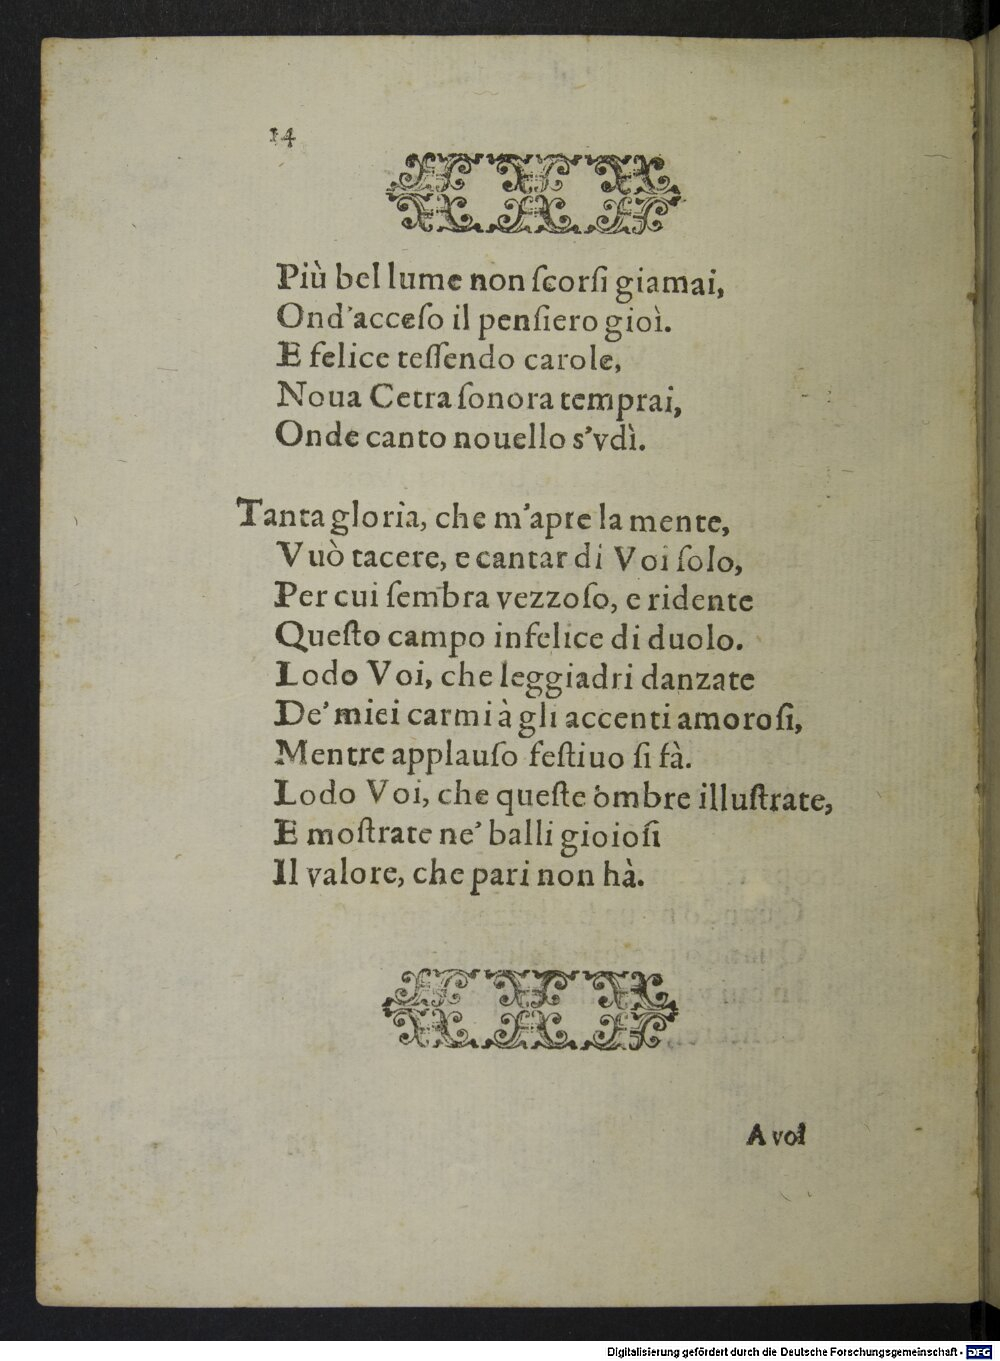 14
Più bel lume non ſcorſi giamai,
Ond'acceſo il penſiero gioì.
E felice teſſendo carole,
Noua Cetra ſonora temprai,
Onde canto nouello s'vdì.
Tanta gloria, che m'apre la mente,
Vuò tacere, e cantar di Voi ſolo,
Per cui ſembra vezzoſo, e ridente
Queſto campo infelice di duolo.
Lodo Voi, che leggiadri danzate
De' miei carmi à gli accenti amoroſi,
Mentre applauſo feſtiuo ſi fà.
Lodo Voi, che queſte ombre illuſtrate,
E moſtrate ne' balli gioioſi
Il valore, che pari non hà.
A voi
Digitalisierung gefördert durch die Deutsche Forschungsgemeinschaft - DFG